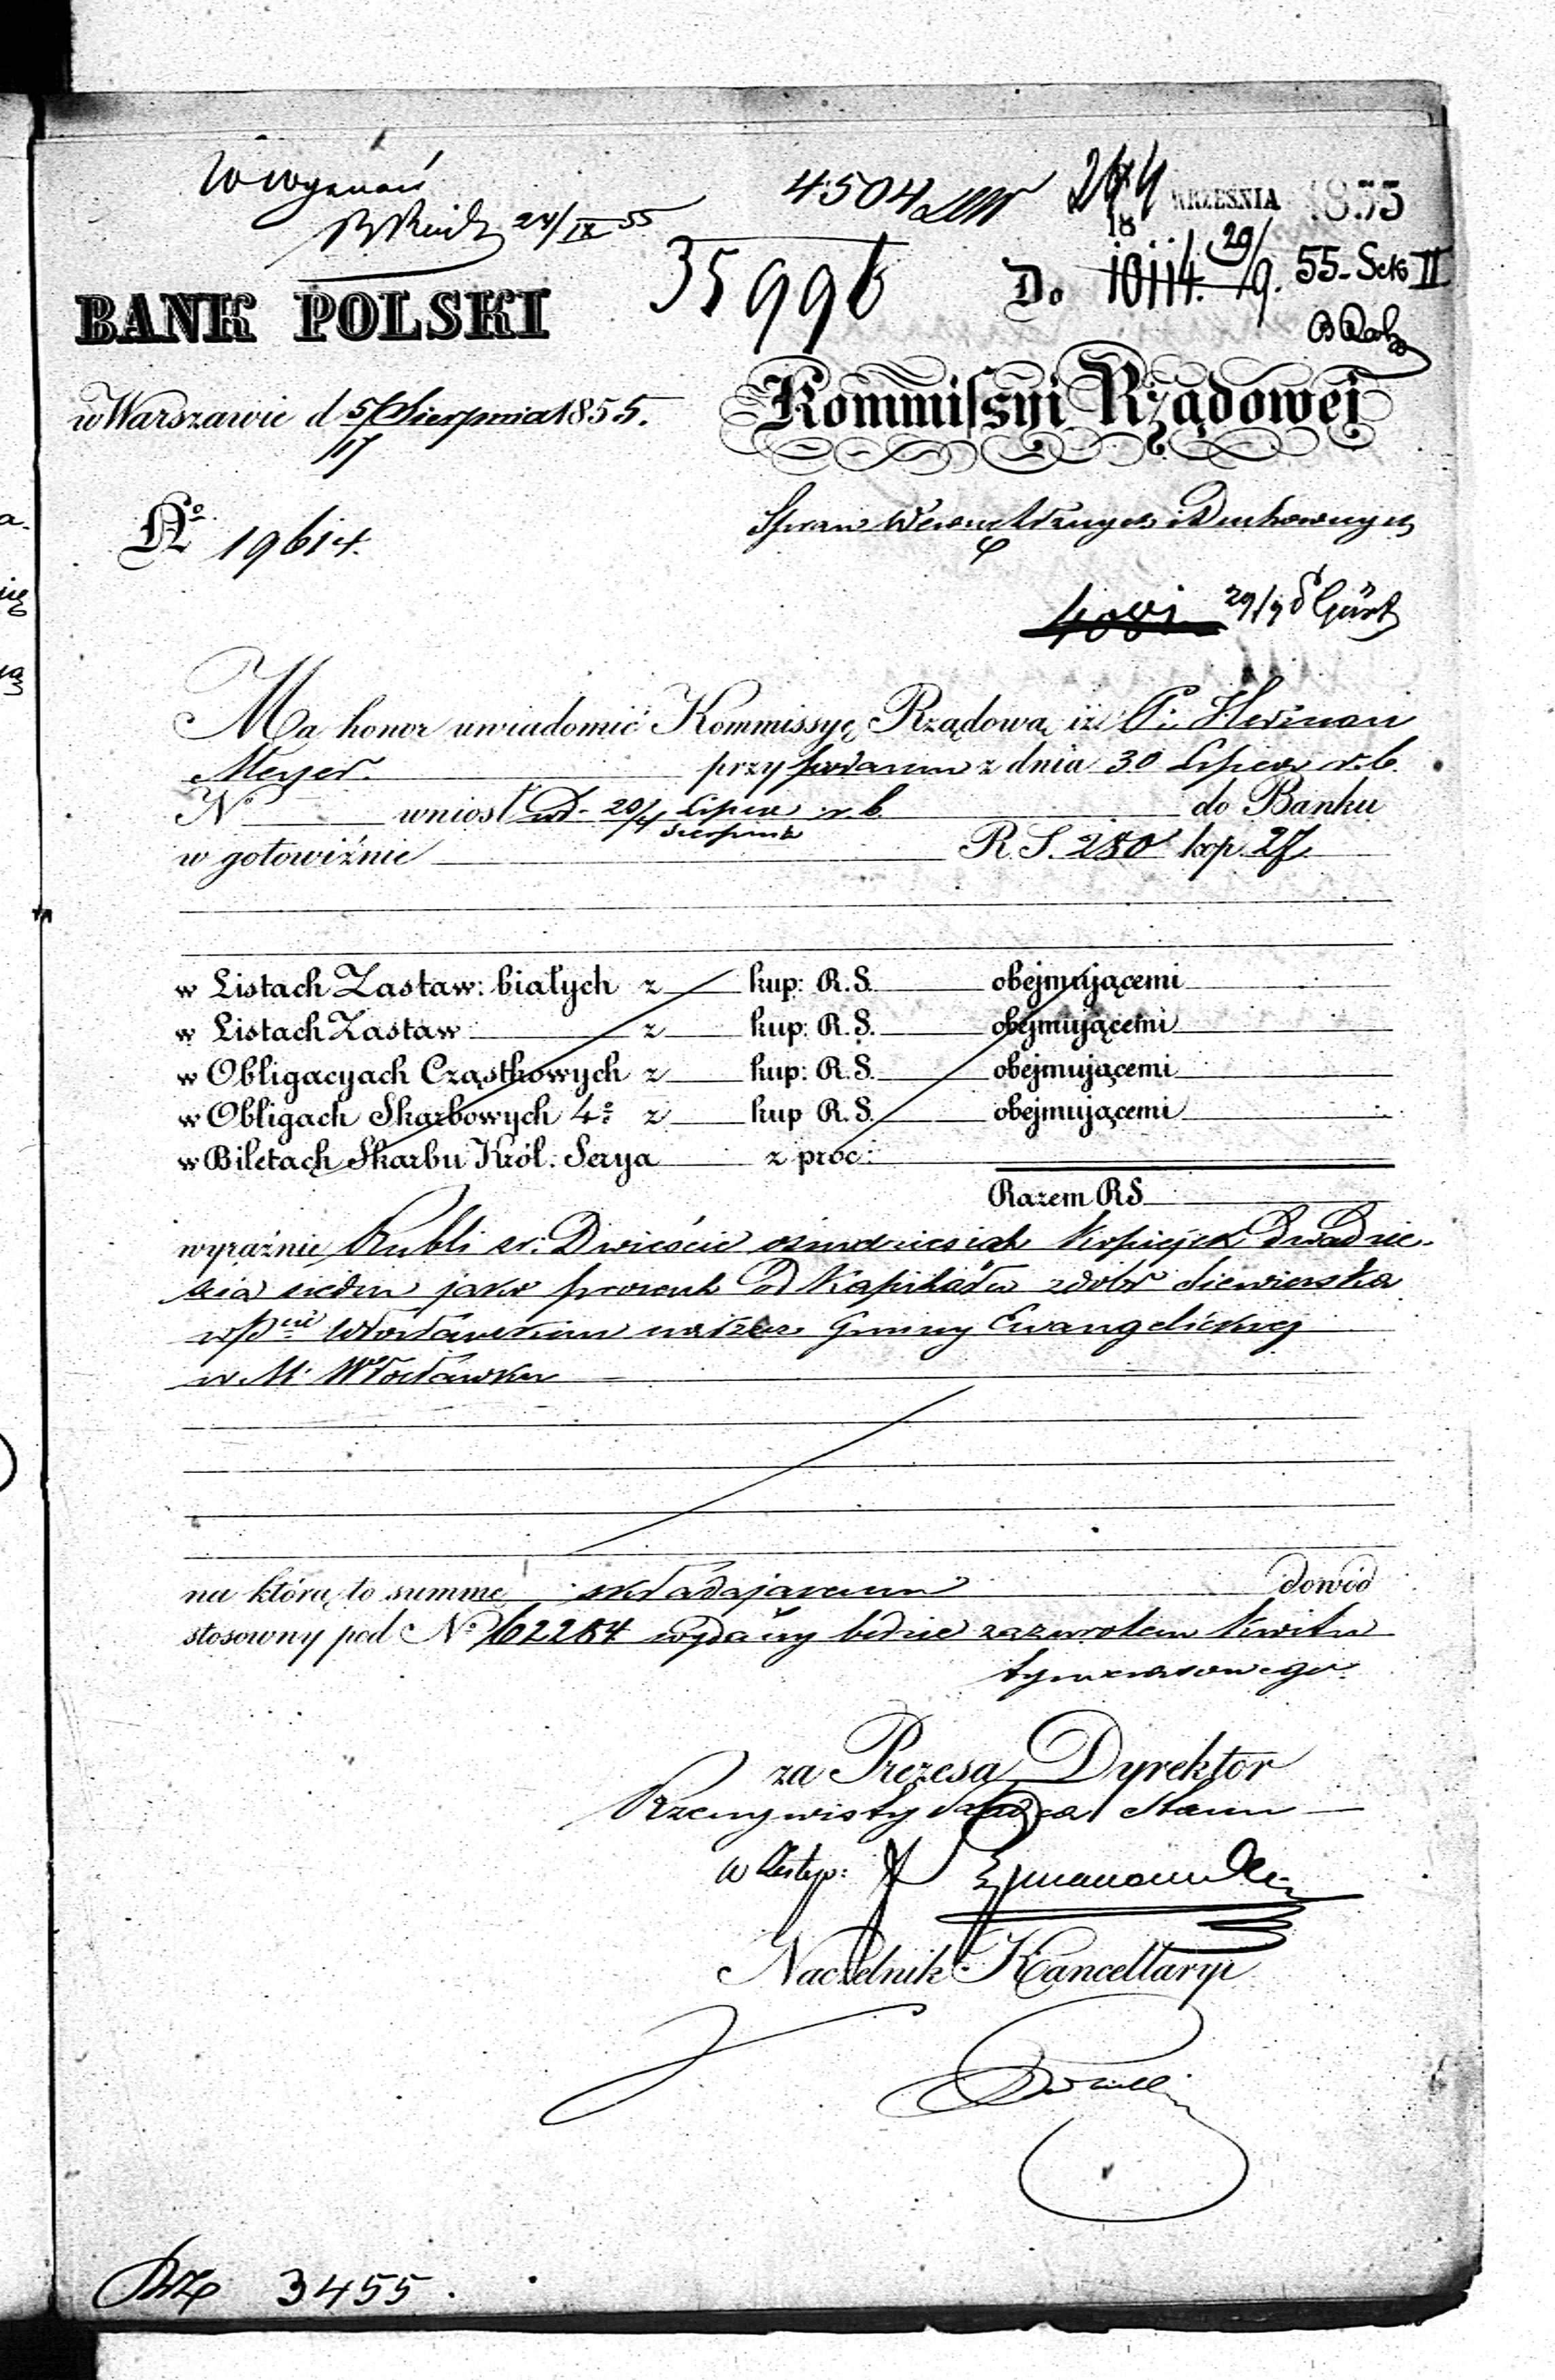 24/IX 55
4504
WRZEŚNIA 1855
35996
Do 10114. 29/9. 55 - Sek II
BANK POLSKI
Kommissyi Rządowej
w Warszawie d 5/17 Sierpnia 1855.
Spraw Wewnętrznych i Duchownych
No 19614.
29/9
Ma honor uwiadomić Kommissyę Rządową iż P. Herman
Meyer przy podaniu z dnia 30 Lipca r. b.
No wniosł d. Lipca r b do Banku
Sierpnia
w gotowiźnie R. S. 280 kop. 27
w Listach Zastaw: białych z kup: R. S. obejmującemi
w Listach Zastaw z kup: R. S. obejmującemi
w Obligacyach Cząstkowych z kup: R. S. obejmującemi
w Obligach Skarbowych 4o z kup R. S. obejmującemi
w Biletach Skarbu Król. Serya z proc:
Razem RS
wyraźnie Rubli sr. Dwieście ośmdziesiąt kopiejek Dwadzie-
ścia siedm jako procent od Kapitału z dóbr Siewierska
w Pcie Włocławskim na rzecz Gminy Ewangelickiej
w M. Włocławku
na którą to summę składającemu dowód
stosowny pod No 62284 wydany będzie za zwrotem kwitu
tymczasowego.
za Prezesa Dyrektor
Rzeczywisty Radca Stanu
w Zastęp:
Naczelnik Kancellaryi
3455.